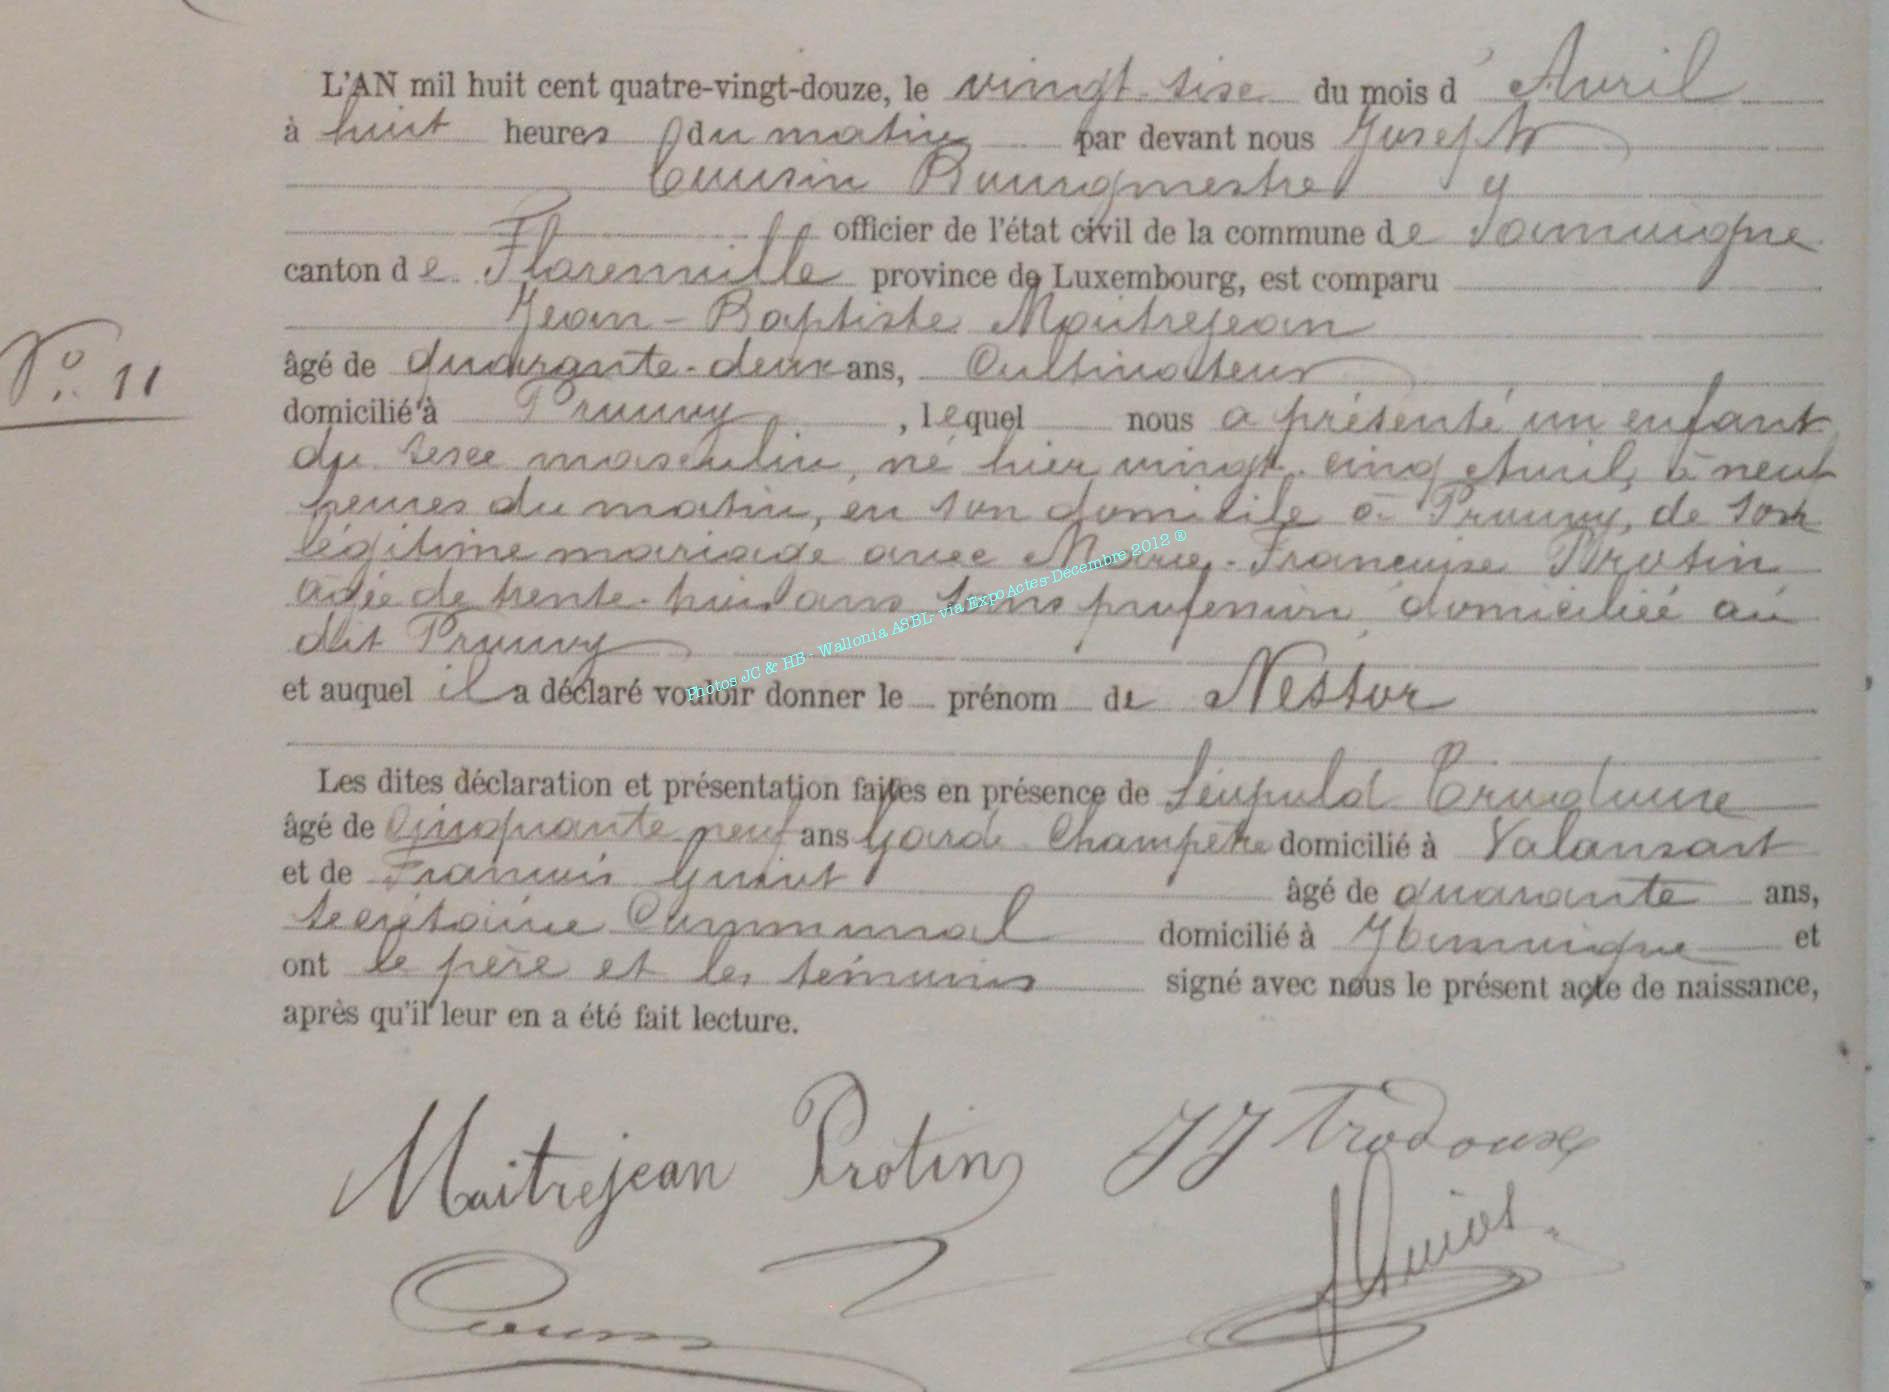 L'AN mil huit cent quatre-vingt-douze, le vingt-sixe du mois d'Avril
à huit heures du matin par devant nous Joseph
Cousin Bourgmestre
officier de l'état civil de la commune de Jamoigne
canton de Florenville province de Luxembourg, est comparu
Jean-Baptiste Maitrejean
N° 11
âgé de quarante-deux ans, Cultivateur
domicilié à Prouvy, lequel nous a présenté un enfant
du sexe masculin, né hier vingt-cinq Avril, à neuf
heures du matin, en son domicile à Prouvy, de son
légitime mariage avec Marie-Françoise Protin
âgée de trente-huit ans sans profession domiciliée au
dit Prouvy
et auquel il a déclaré vouloir donner le prénom de Nestor
Les dites déclaration et présentation faites en présence de Léopold
âgé de Cinquante neuf ans Garde Champêtre domicilié à Valansart
et de François Guiot âgé de quarante ans,
secrétaire Communal domicilié à Jamoigne et
ont le père et les témoins signé avec nous le présent acte de naissance,
après qu'il leur en a été fait lecture.
Maitrejean Protin JJ Trodoux
Guiot
Cousin
Photos JC & HB - Wallonia ASBL- via ExpoActes-Décembre 2012 ®